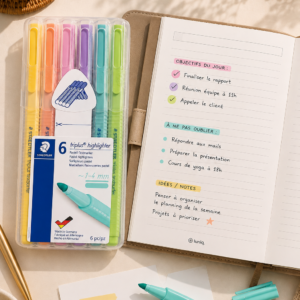 STAEDTLER
6 triplus® highlighter
1-4 mm
6 pcs/pz
OBJECTIFS DU JOUR
Finaliser le rapport
Réunion équipe à 11h
Appeler le client
À NE PAS OUBLIER
Répondre aux mails
Préparer la présentation
Cours de yoga à 18h
IDÉES / NOTES
Penser à organiser
le planning de la semaine
Projets à prioriser